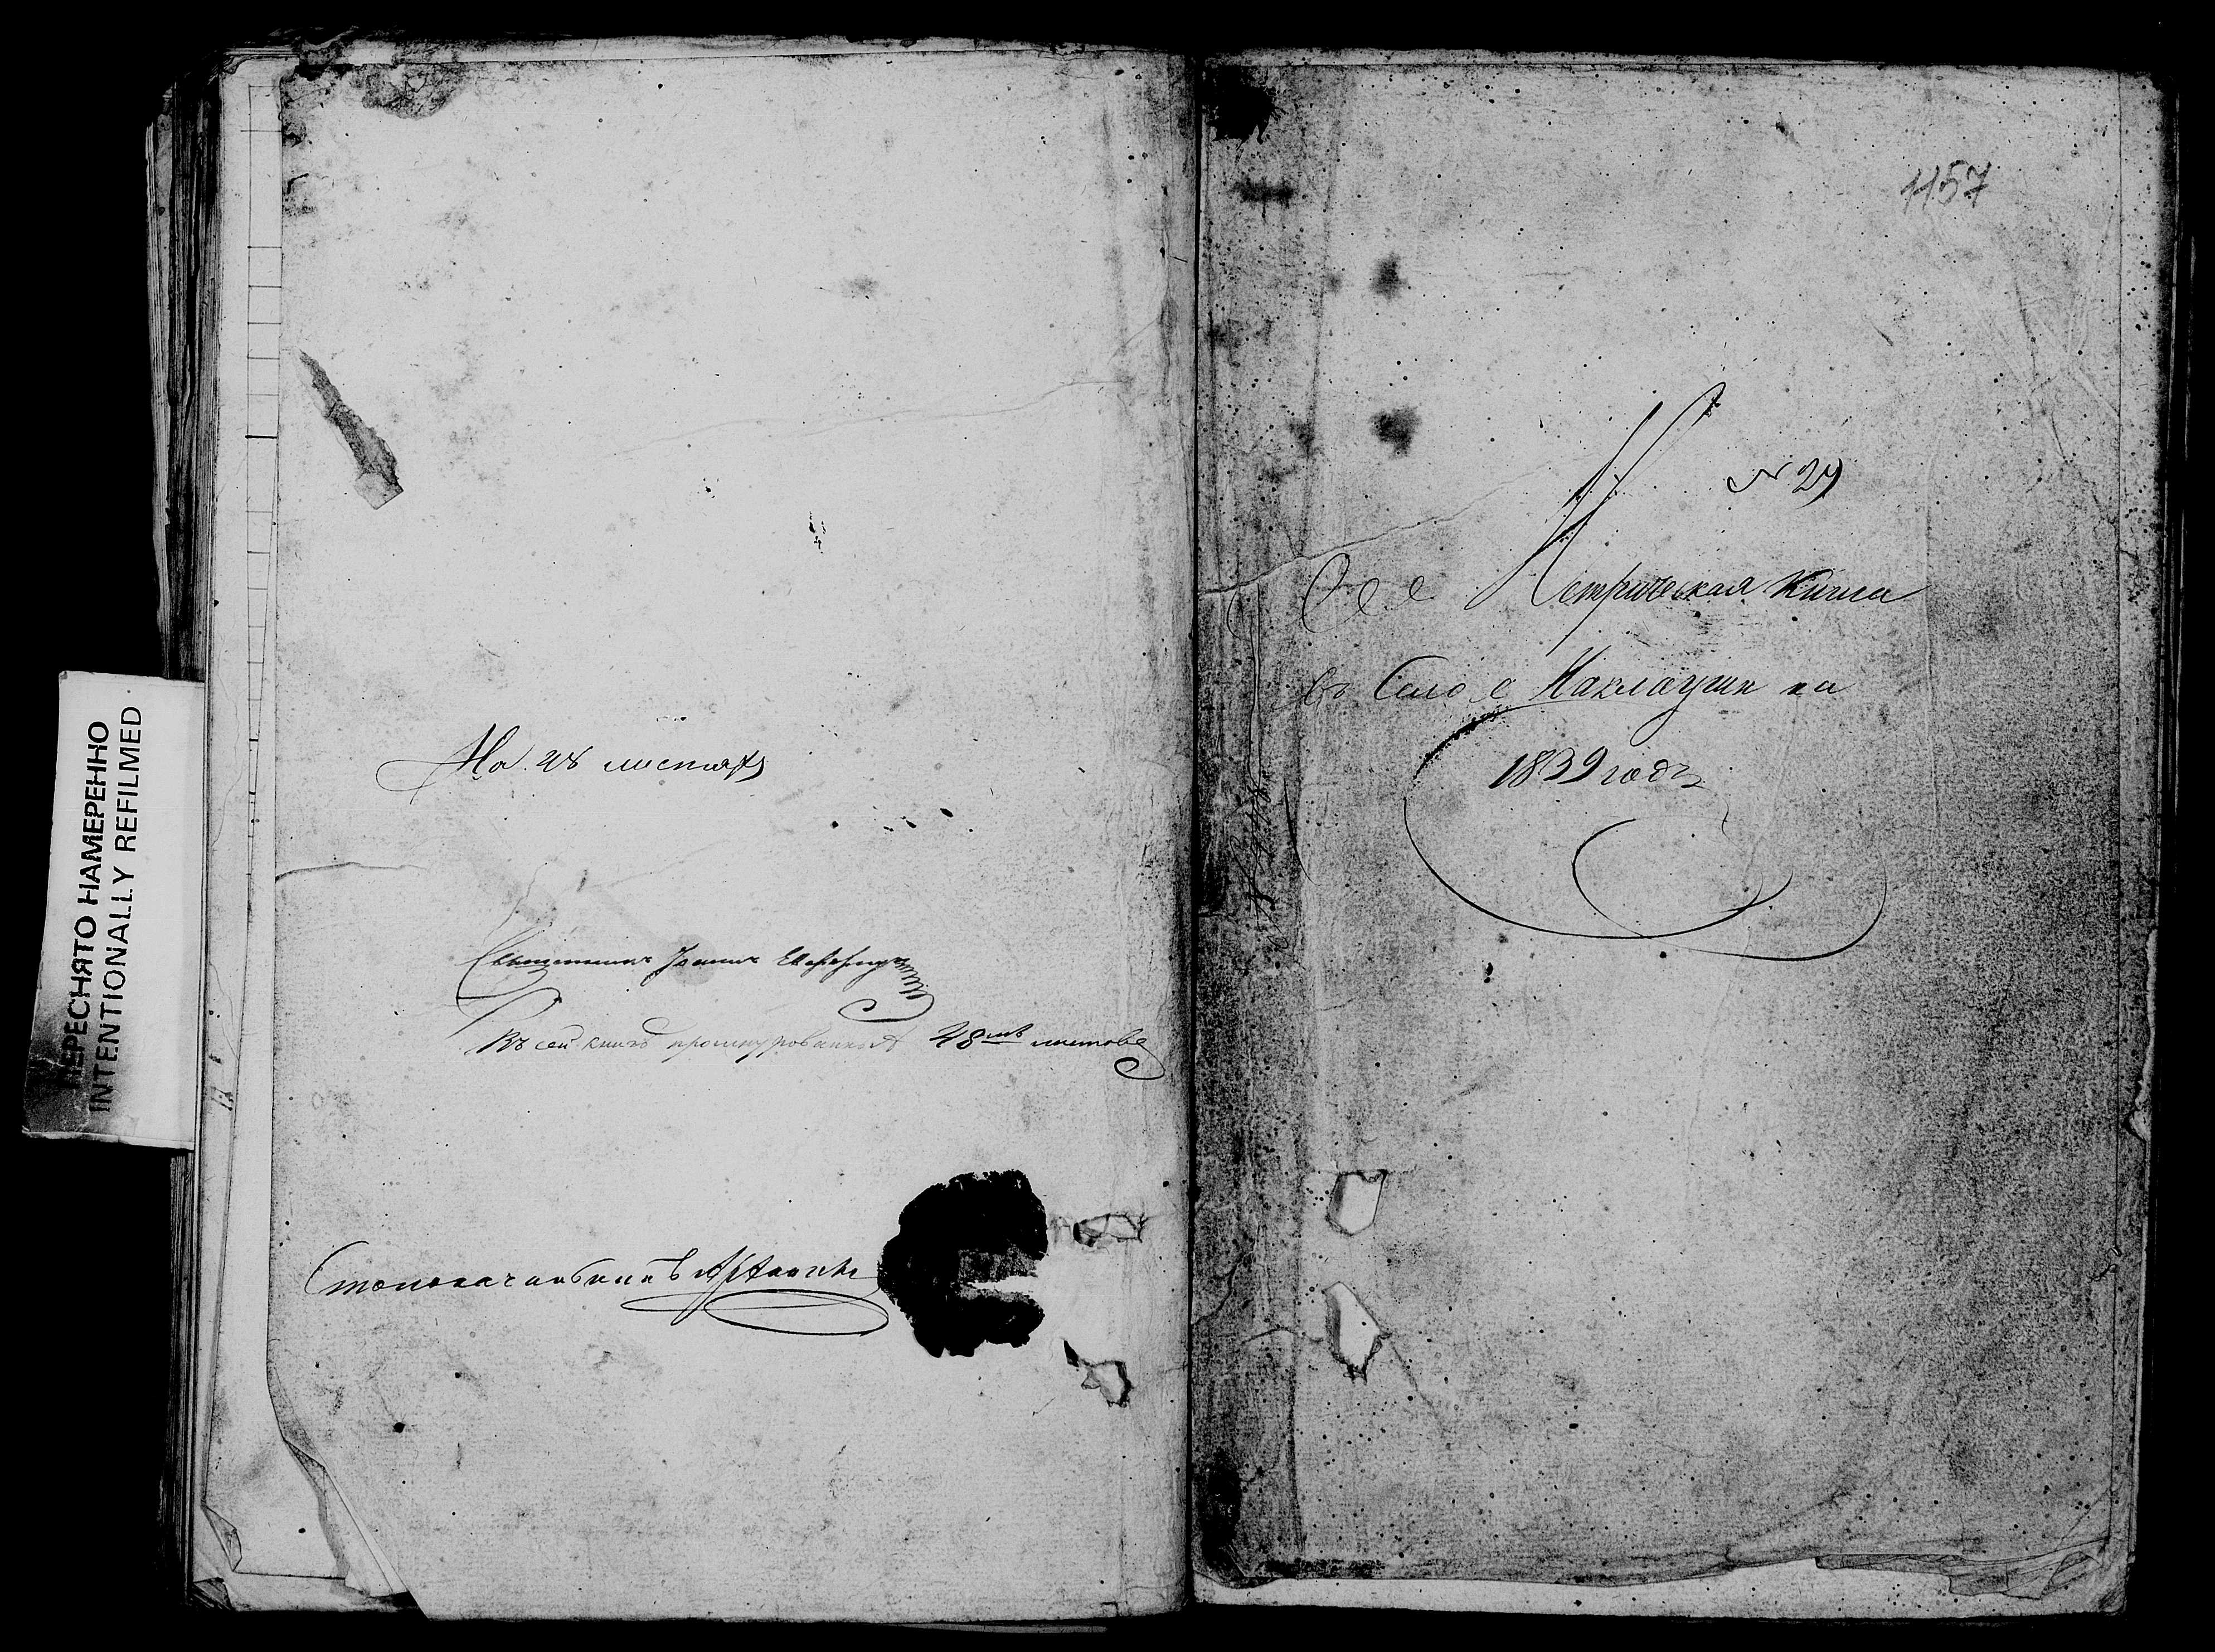 ПЕРЕСНЯТО НАМЕРЕННО
INTENTIONALLY REFILMED
На 28 листахъ
Священникъ Іоаннъ
Въ сей книгѣ прошнурованныхъ 28мь листовъ
Столоначальникъ
1157
№ 29
Метрическая Книга
въ Село Маклаушъ на
1839 годъ